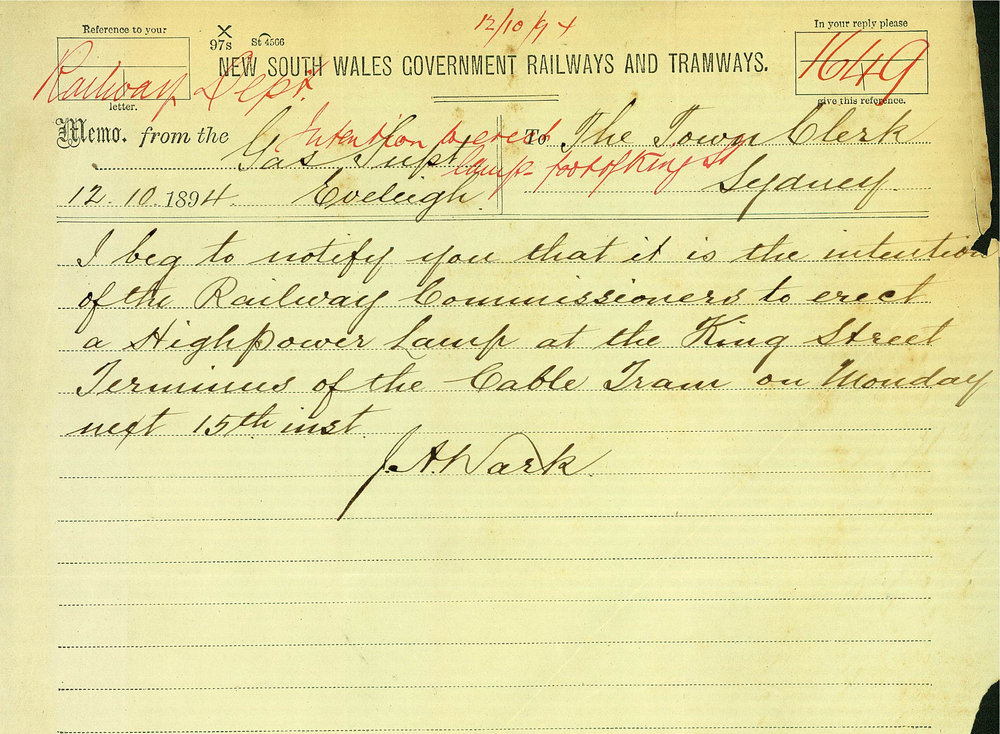 12/10/94
Reference to your
In your reply please
X
97s St 4566
1649
NEW SOUTH WALES GOVERNMENT RAILWAYS AND TRAMWAYS.
Railway Dept.
letter.
give this reference.
Memo. from the Gas Supt. To The Town Clerk
Intention to erect
lamp foot of King St
12.10.1894. Eveleigh. Sydney.
I beg to notify you that it is the intention
of the Railway Commissioners to erect
a High power Lamp at the King Street
Terminus of the Cable Tram on Monday
next 15th inst.
J. A. Wark.